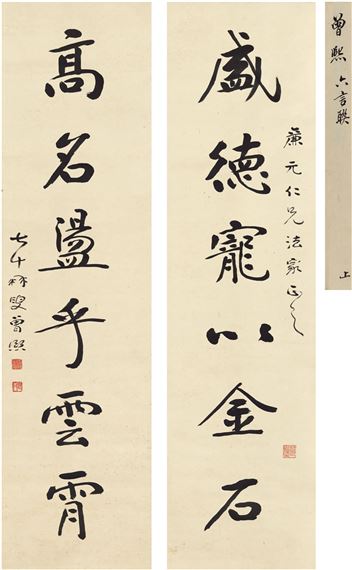 盛德寵以金石
廉元仁兄法家正之
高名盪乎雲霄
七十 叟曾熙
曾熙 六言聯
上